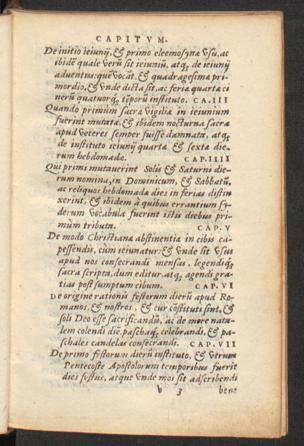 CAPITVM.
De initio ieiunij, & primo eleemosynæ vsu, ac
ibidẽ quale verũ sit ieiuniũ, atq; de ieiunij
aduentus: quẽ vocãt, & quadragesimæ pri-
mordio, & vnde dicta sit, ac feria quarta ci
nerũ quatuorq; tẽporũ instituto. CA. III
Quando primũm sacra vigilia in ieiunium
fuerint mutata, & ibidem nocturna sacra
apud veteres semper fuisse damnata, atq;
de instituto ieiunij quarta & sexta die-
rum hebdomadæ. CAP. IIII
Qui primi mutauerint Solis & Saturni die-
rum nomina, in Dominicum, & Sabbatũ,
ac reliquos hebdomada dies in ferias distin
xerint, & ibidem à quibus errantium sy-
derum vocabula fuerint istis diebus pri-
mùm tributa. CAP. V
De modo Christiana abstinentia in cibis ca-
pessendis, cum ieiunatur: & vnde sit vsus
apud nos consecrandi mensas, legendiq;
sacra scripta, dum editur, atq; agendi gra-
tias post sumptum cibum. CAP. VI
De origine rationis festorum dierũ apud Ro-
manos, & nostros, & cur cõstituti sint, &
soli Deo esse sacrificandũ, ac de more nata-
lem colendi diẽ, paschaq; celebrandi, & pa-
schales candelas consecrandi. CAP. VII
De primo festorum dierũ instituto, & vtrum
Pentecoste Apostolorum temporibus fuerit
dies festus, atque vnde mos sit adscribendi
b 3 bene